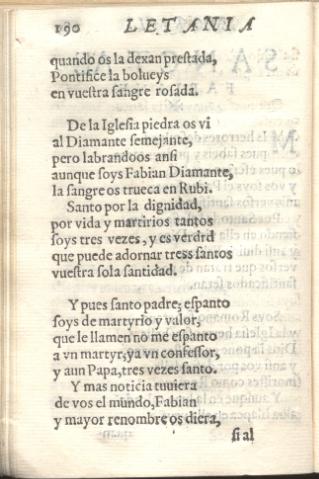 190 LETANIA
quando os la dexan prestada,
Pontifice la bolueys
en vuestra sangre rosada.
De la Iglesia piedra os vi
al Diamante semejante,
pero labrandoos ansi
aunque soys Fabian Diamante,
la sangre os trueca en Rubi.
Santo por la dignidad,
por vida y martirios tantos
soys tres vezes, y es verdrd
que puede adornar tress santos
vuestra sola santidad.
Y pues santo padre; espanto
soys de martyrio y valor,
que le llamen no me espanto
a vn martyr, ya vn confessor,
y aun Papa, tres vezes santo.
Y mas noticia tuuiera
de vos el mundo, Fabian
y mayor renombre os diera,
si al